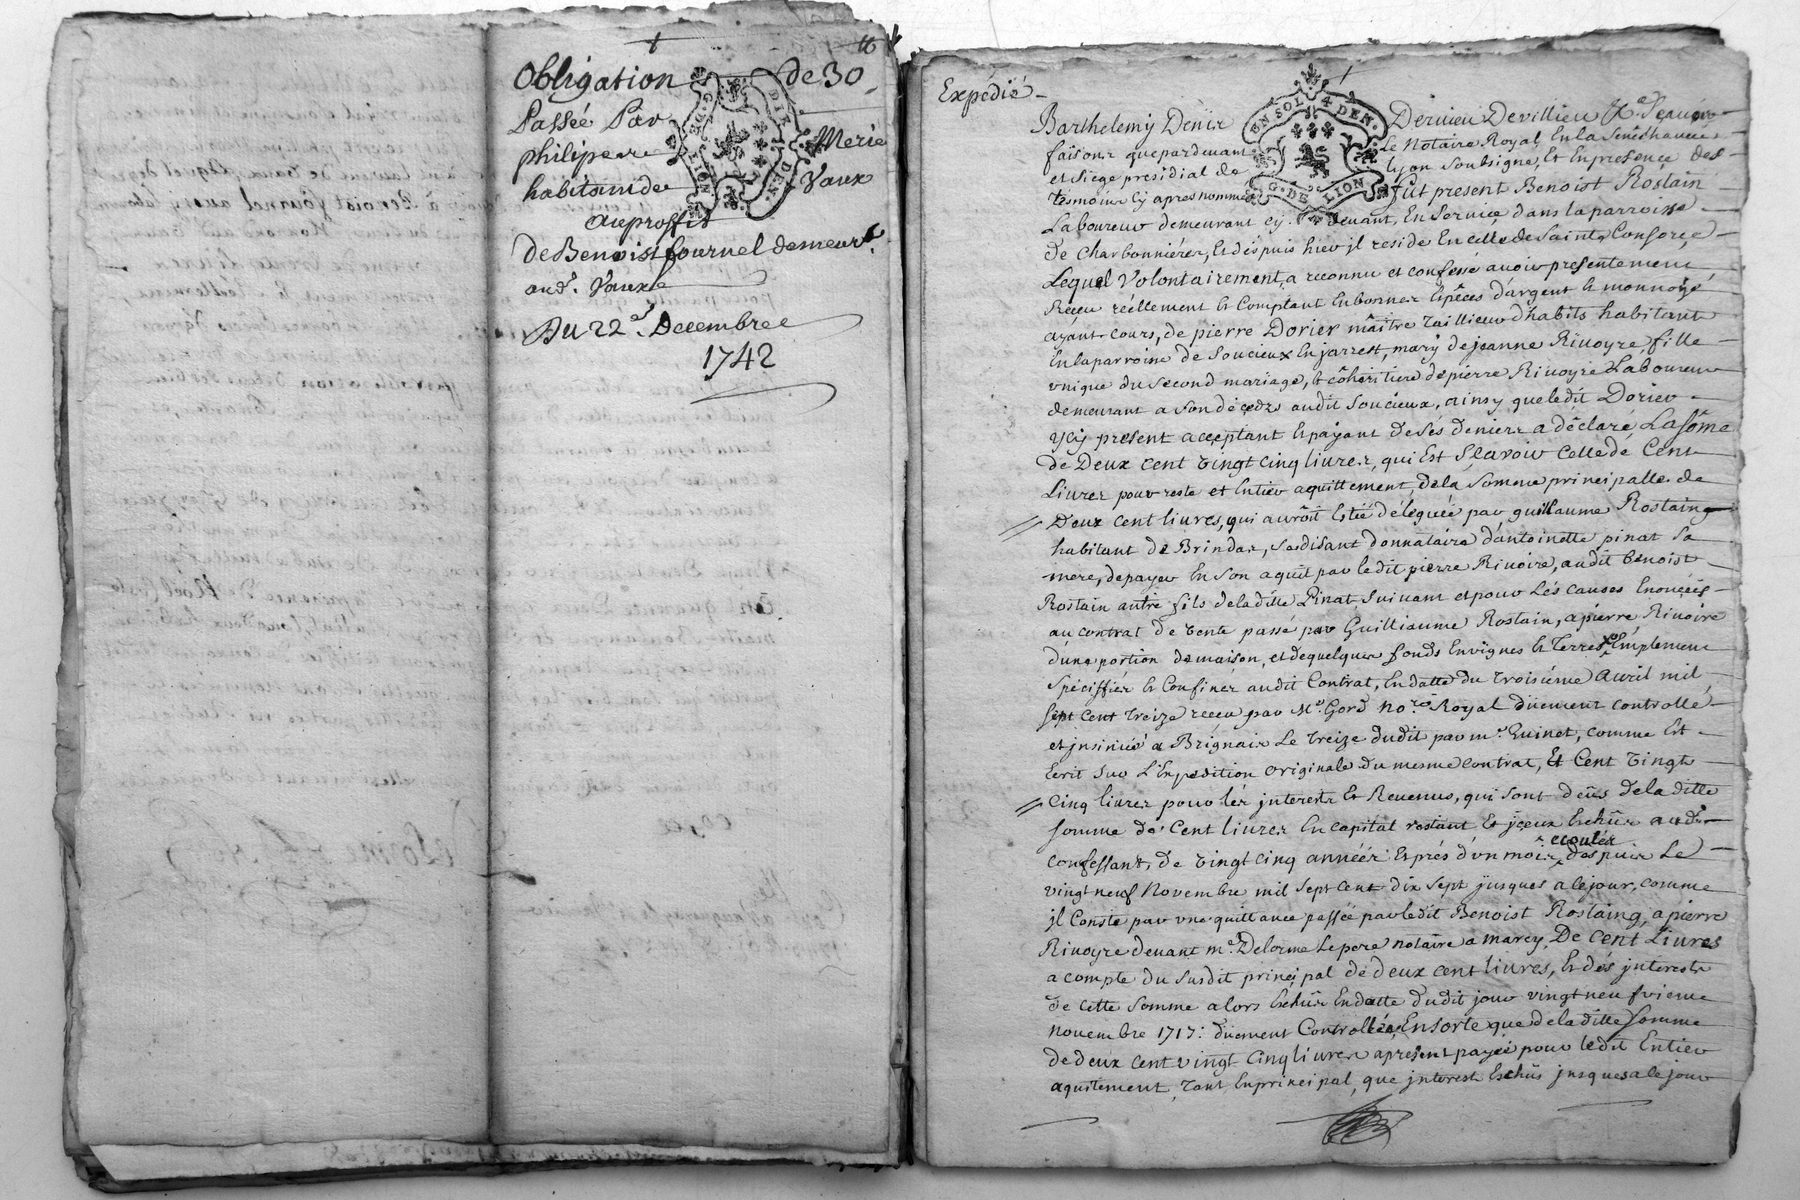 16
Obligation de 30
Passée Par
philipe Merie
habitant de Vaux
au proffit
de Benoist fournel demeurt.
aud. Vaux
Du 22e. Decembre
1742
DIX DEN.
G. DE LION
Expédié
EN SOL 4 DEN.
G. DE LION
Barthelemy Denis Dervieu Devillieu
faisons que pardevant le Notaire Royal En la Sénéchaucée
et siège présidial de lyon soubsigné, Et En presence des
tesmoins cy apres nommés fut present Benoist Rostain
Laboureur demeurant cy devant, En Service dans la parroisse
de Charbonniéres, Et depuis hier jl reside En celle de Sainte Consorce
Lequel Volontairement, a reconnu et confessé avoir presentement
Reçu réellement & Comptant En bonnes Espèces d'argent & monnoye
ayant cours, de pierre Dorier maître tailleur d'habits habitant
En la parroisse de Soucieux En jarrest, mary de jeanne Rivoyre fille
unique du second mariage, & cohéritiere de pierre Rivoyre Laboureur
demeurant a son décedz audit Soucieux, ainsy que ledit Dorier
ycy present acceptant & payant de ses deniers a déclaré, La sôme
de Deux cent vingt cinq livres, qui Est Sçavoir celle de Cent
Livres pour reste et Entier aquittement de la Somme principalle de
Deux cent livres, qui auroit Esté déléguée par guillaume Rostaing
habitant de Brindas, se disant donnataire d'antoinette pinat sa
mere, de payer En son aquit par ledit pierre Rivoire, audit benoist
Rostain autre fils de la ditte Pinat, suivant et pour Les causes Enoncées
au contrat de vente passé par Guilliaume Rostain, a pierre Rivoire
d'une portion de maison, et de quelques fonds En vignes & Terres, Emplement
Spéciffiés & Confinés audit Contrat, En datte du troisiéme Avril mil
sept cent treize receu par Me. Gord nore. Royal düement controllé
et jnsinué a Brignais Le treize dudit par mr. Guinet, comme Est
Ecrit sur L'Expedition originale du mesme contrat, Et Cent vingt
Cinq livres pour les jnterests Et Revenus, qui sont deûs de la ditte
somme de Cent livres En capital restant Et yceux Echûs aud.
confessant, de vingt cinq années Et prés d'un mois, ecoulés depuis Le
vingt neuf Novembre mil sept cent dix sept jusques a ce jour, comme
jl Conste par une quittance passée par ledit Benoist Rostaing, a pierre
Rivoyre devant me. Delorme Le pere notaire a marcy, De Cent Livres
a compte du susdit principal de deux cent livres, Et des jnterests
de cette somme alors Echûs En datte dudit jour vingt neufvieme
novembre 1717: düement Controllée, En sorte que de la ditte somme
de deux cent vingt Cinq livres apresent payée pour ledit Entier
aquitement, tant En principal, que jnterests Echûs jusques a ce jour